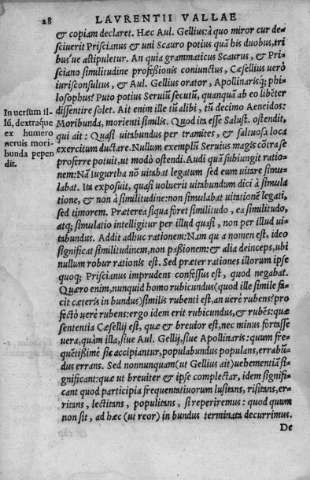 28 LAVRENTII VALLAE
& copiam declaret. Hæc Aul. Gellius: à quo miror cur de-
sciuerit Priscianus & uni Scauro potius quàm his duobus, tri
bus'ue astipuletur. An quia grammaticus Scaurus, & Pri-
sciano similitudine professionis coniunctus, Cæsellius uerò
iurisconsultus, & Aul. Gellius orator, Apollinarisq; phi-
losophus? Puto potius Seruiũ secutũ, quanquã ab eo libēter
In uersum il-
lũ, dextraque
ex humero
neruis mori-
bunda pepen
dit.
dissentire solet. Ait enim ille tũ alibi, tũ decimo Aeneidos:
Moribunda, morienti similis. Quod ita esse Salust. ostendit,
qui ait: Quasi uitabundus per tramites, & saltuosa loca
exercitum ductare. Nullum exemplũ Seruius magis cõtra se
proferre potuit, ut modò ostendi. Audi quã subiungit ratio-
nem: Nã Iugurtha nõ uitabat legatum sed eum uitare simu-
labat. Ita exposuit, quasi uoluerit uitabundum dici à simula
tione, & non à similitudine: non simulabat uitationẽ legati,
sed timorem. Præterea siqua foret similitudo, ea similitudo,
atq; simulatio intelligitur per illud quasi, non per illud ui-
tabundus. Addit adhuc rationem: Nam quæ nomen est, ideo
significat similitudinem, non passionem: & alia deinceps, ubi
nullum robur rationis est. Sed præter rationes illorum ipse
quoq; Priscianus imprudens confessus est, quod negabat.
Quæro enim, nunquid homo rubicundus (quod ille simile fa-
cit cæteris in bundus) similis rubenti est, an uerè rubens? pro
fectò uerè rubens: ergo idem erit rubicundus, & rubẽs: quæ
sententia Cæsellij est, quæ & breuior est, nec minus fortasse
uera, quàm illa, siue Aul. Gellij, siue Apollinaris: quum fre-
quẽtissimè sic accipiantur, populabundus populans, errabũ-
dus errans. Sed nonnunquam (ut Gellius ait) uehementiã si-
gnificant: quæ ut breuiter & ipse complectar, idem signifi-
cant quod participia frequentatiuorum lusitans, risitans, er-
ritans, lectitans, populitans, si reperiremus: quod quum
non sit, ad hæc (ut reor) in bundus terminata decurrimus.
De